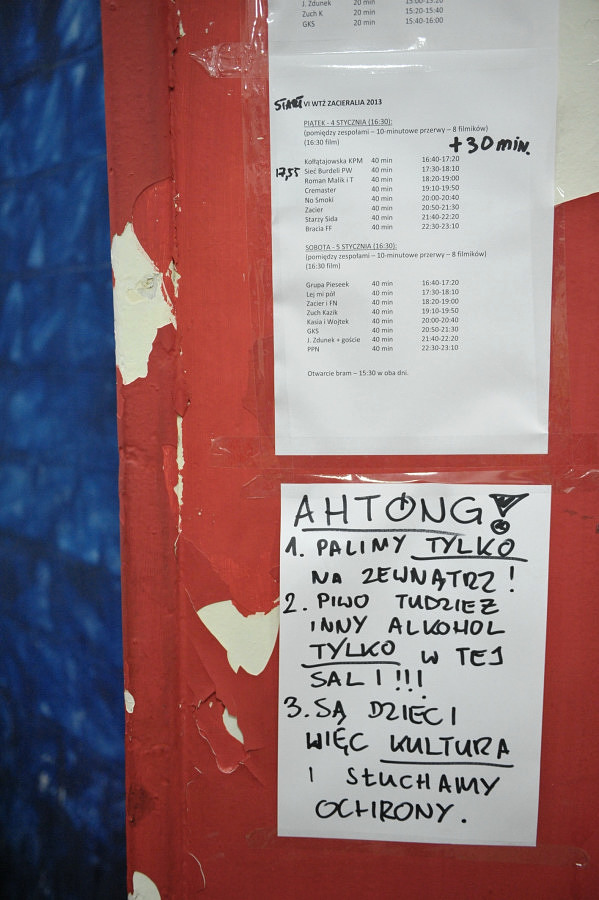 J. Zdunek 20 min 15:00-15:20
Zuch K 20 min 15:20-15:40
GKS 20 min 15:40-16:00
START VI WTŻ ZACIERALIA 2013
PIĄTEK - 4 STYCZNIA (16:30):
(pomiędzy zespołami – 10-minutowe przerwy – 8 filmików)
(16:30 film)
+30 min.
Kołłątajowska KPM 40 min 16:40-17:20
17,55 Sieć Burdeli PW 40 min 17:30-18:10
Roman Malik i T 40 min 18:20-19:00
Cremaster 40 min 19:10-19:50
No Smoki 40 min 20:00-20:40
Zacier 40 min 20:50-21:30
Starzy Sida 40 min 21:40-22:20
Bracia FF 40 min 22:30-23:10
SOBOTA - 5 STYCZNIA (16:30):
(pomiędzy zespołami – 10-minutowe przerwy – 8 filmików)
(16:30 film)
Grupa Pieseek 40 min 16:40-17:20
Lej mi pół 40 min 17:30-18:10
Zacier i FN 40 min 18:20-19:00
Zuch Kazik 40 min 19:10-19:50
Kasia i Wojtek 40 min 20:00-20:40
GKS 40 min 20:50-21:30
J. Zdunek + goście 40 min 21:40-22:20
PPN 40 min 22:30-23:10
Otwarcie bram – 15:30 w oba dni.
AHTÓNG!
1. PALIMY TYLKO
NA ZEWNĄTRZ!
2. PIWO TUDZIEŻ
INNY ALKOHOL
TYLKO W TEJ
SALI!!!
3. SĄ DZIECI
WIĘC KULTURA
I SŁUCHAMY
OCHRONY.